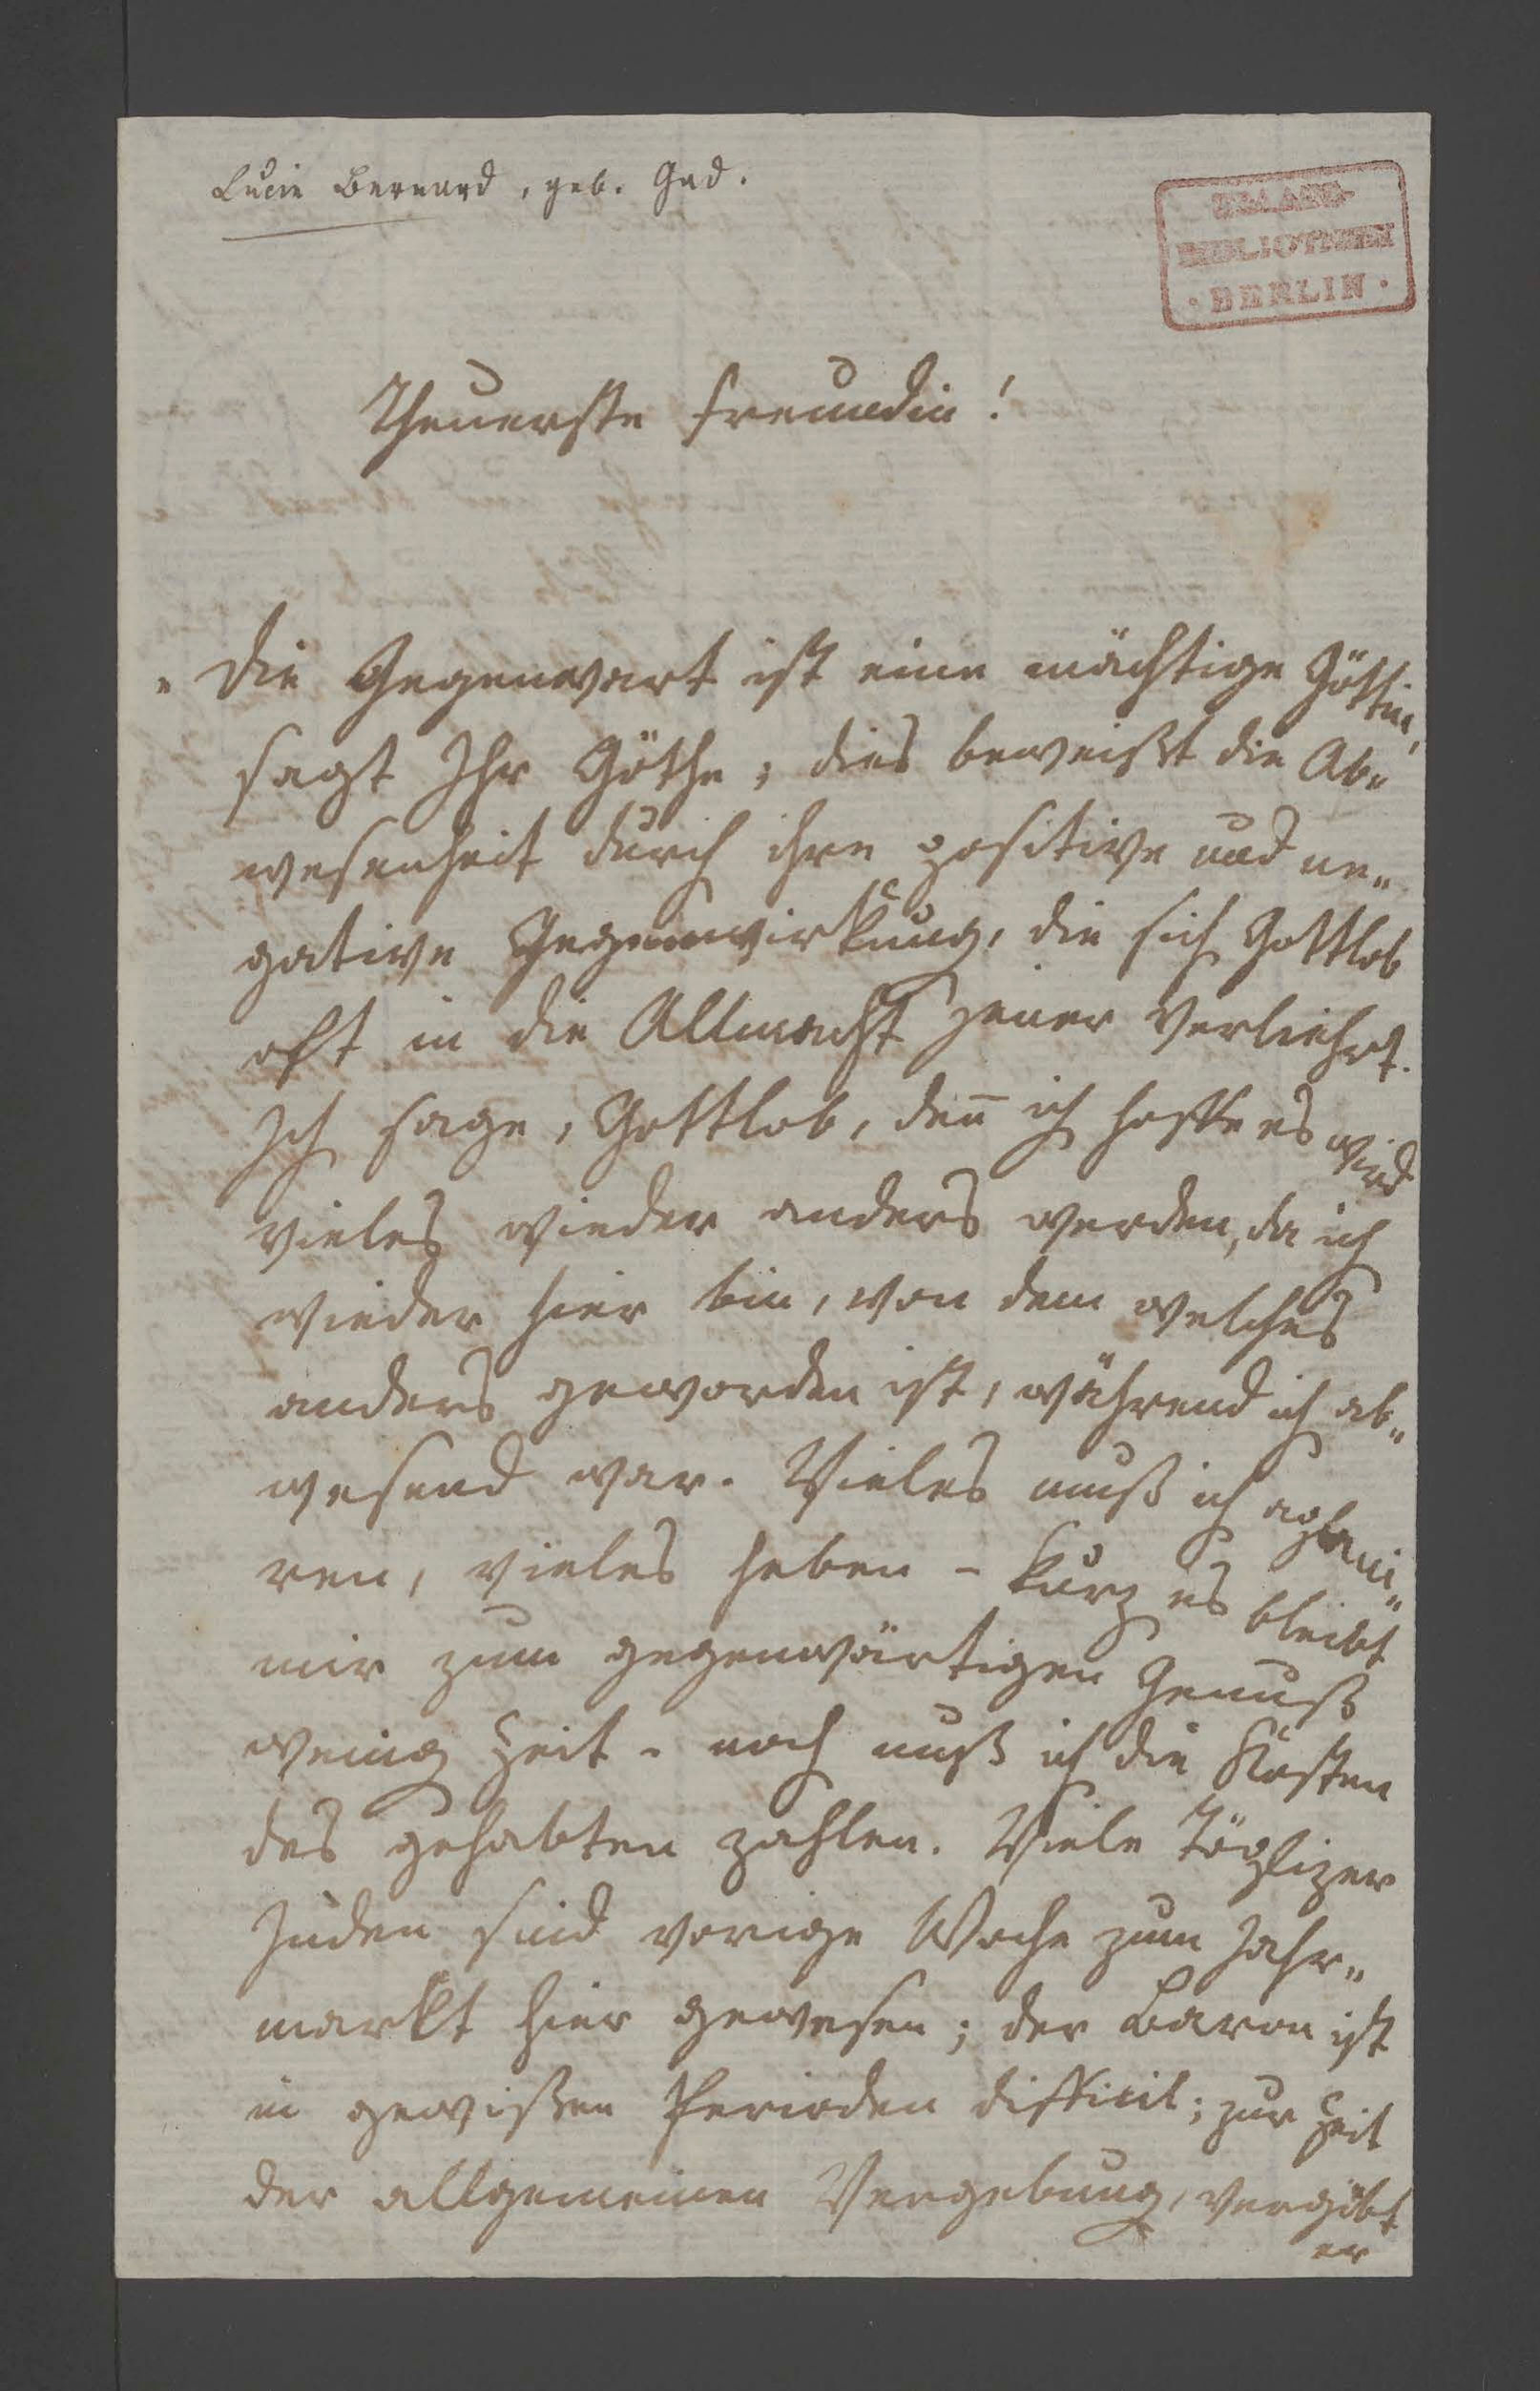 Lucie Bernard, geb. Gad.
BIBLIOTHEK
· BERLIN ·
Theuerste Freundin!
„Die Gegenwart ist eine mächtige Göttin,
sagt Ihr Göthe; dies beweißt die Ab„
wesenheit durch ihre positive und ne„
gative Gegenwirkung, die sich Gottlob
oft in die Allmacht jener verliehrt.
Ich sage, Gottlob, den̄ ich hoffe es wird
vieles wieder anders werden, da ich
wieder hier bin, von dem welches
anders geworden ist, während ich ab„
wesend war. Vieles muß ich
ren, vieles heben – kurz es bleibt
mir zum gegenwärtigen Genuß
wenig Zeit – noch muß ich die Kosten
des gehabten zahlen. Viele Töplizer
Juden sind vorige Woche zum Jahr„
markt hier gewesen; der Baron ist
in gewißen Perioden difficil; zur Zeit
der allgemeinen Vergebung, vergibt
er